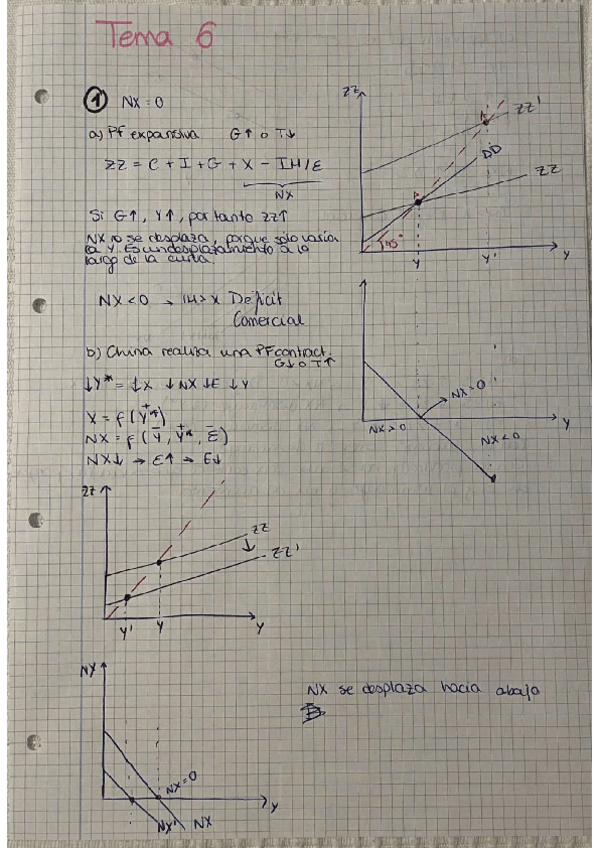 Tema 6
1 NX = 0
a) PF expansiva G↑ o T↓
ZZ = C + I + G + X - IM/E
NX
Si G↑, Y↑, por tanto ZZ↑
NX no se desplaza, porque solo varía
la Y. Es un desplazamiento a lo
largo de la curva.
ZZ
ZZ'
DD
ZZ
A
45°
Y
Y'
Y
NX < 0 → IM > X Déficit
Comercial
b) China realiza una PF contract.
G↓ o T↑
↓Y* = ↓X ↓NX ↓E ↓Y
X = f(Y*)
+
NX = f(Y, Y*, E)
- + -
NX↓ → E↑ → E↓
NX=0
NX>0
NX<0
Y
ZZ
ZZ
ZZ'
Y'
Y
Y
NX
NX=0
NX'
NX
Y
NX se desplaza hacia abajo